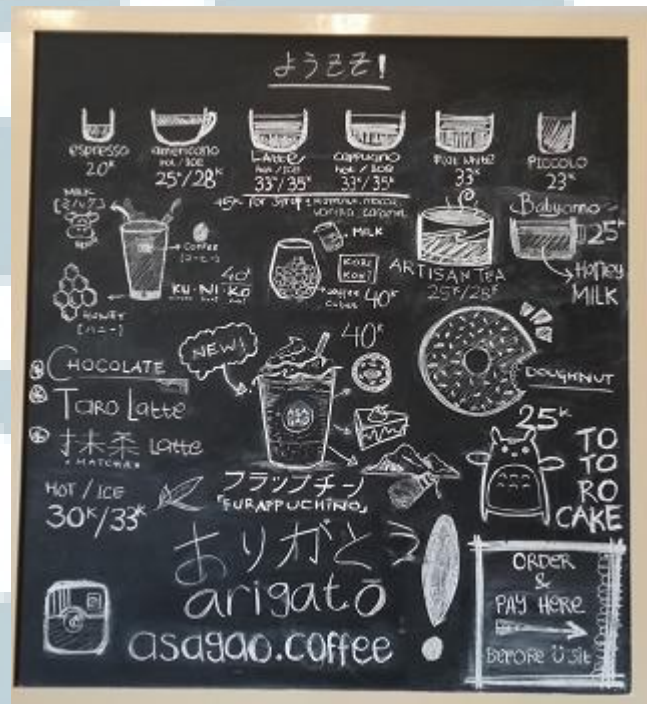 ようこそ!
espresso
20ᴷ
americano
HOT / ICE
25ᴷ/28ᴷ
Latte
HOT / ICE
33ᴷ/35ᴷ
cappucino
HOT / ICE
33ᴷ/35ᴷ
FLAT WHITE
33ᴷ
PICCOLO
23ᴷ
+5ᴷ for syrup
vanilla, caramel
MILK
[ミルク]
Coffee
[コーヒー]
40ᴷ
KU·NI·KO
HONEY
[ハニー]
MILK
KORI
KOHI
coffee
cubes
40ᴷ
ARTISAN TEA
25ᴷ/28ᴷ
Babycino
25ᴷ
Honey
MILK
CHOCOLATE
Taro Latte
抹茶 Latte
MATCHA
HOT / ICE
30ᴷ/33ᴷ
NEW!
40ᴷ
フラップチーノ
「FURAPPUCHINO」
DOUGHNUT
25ᴷ
TO
TO
RO
CAKE
ありがとう!
arigatō
asagao.coffee
ORDER
&
PAY HERE
BEFORE U SIT